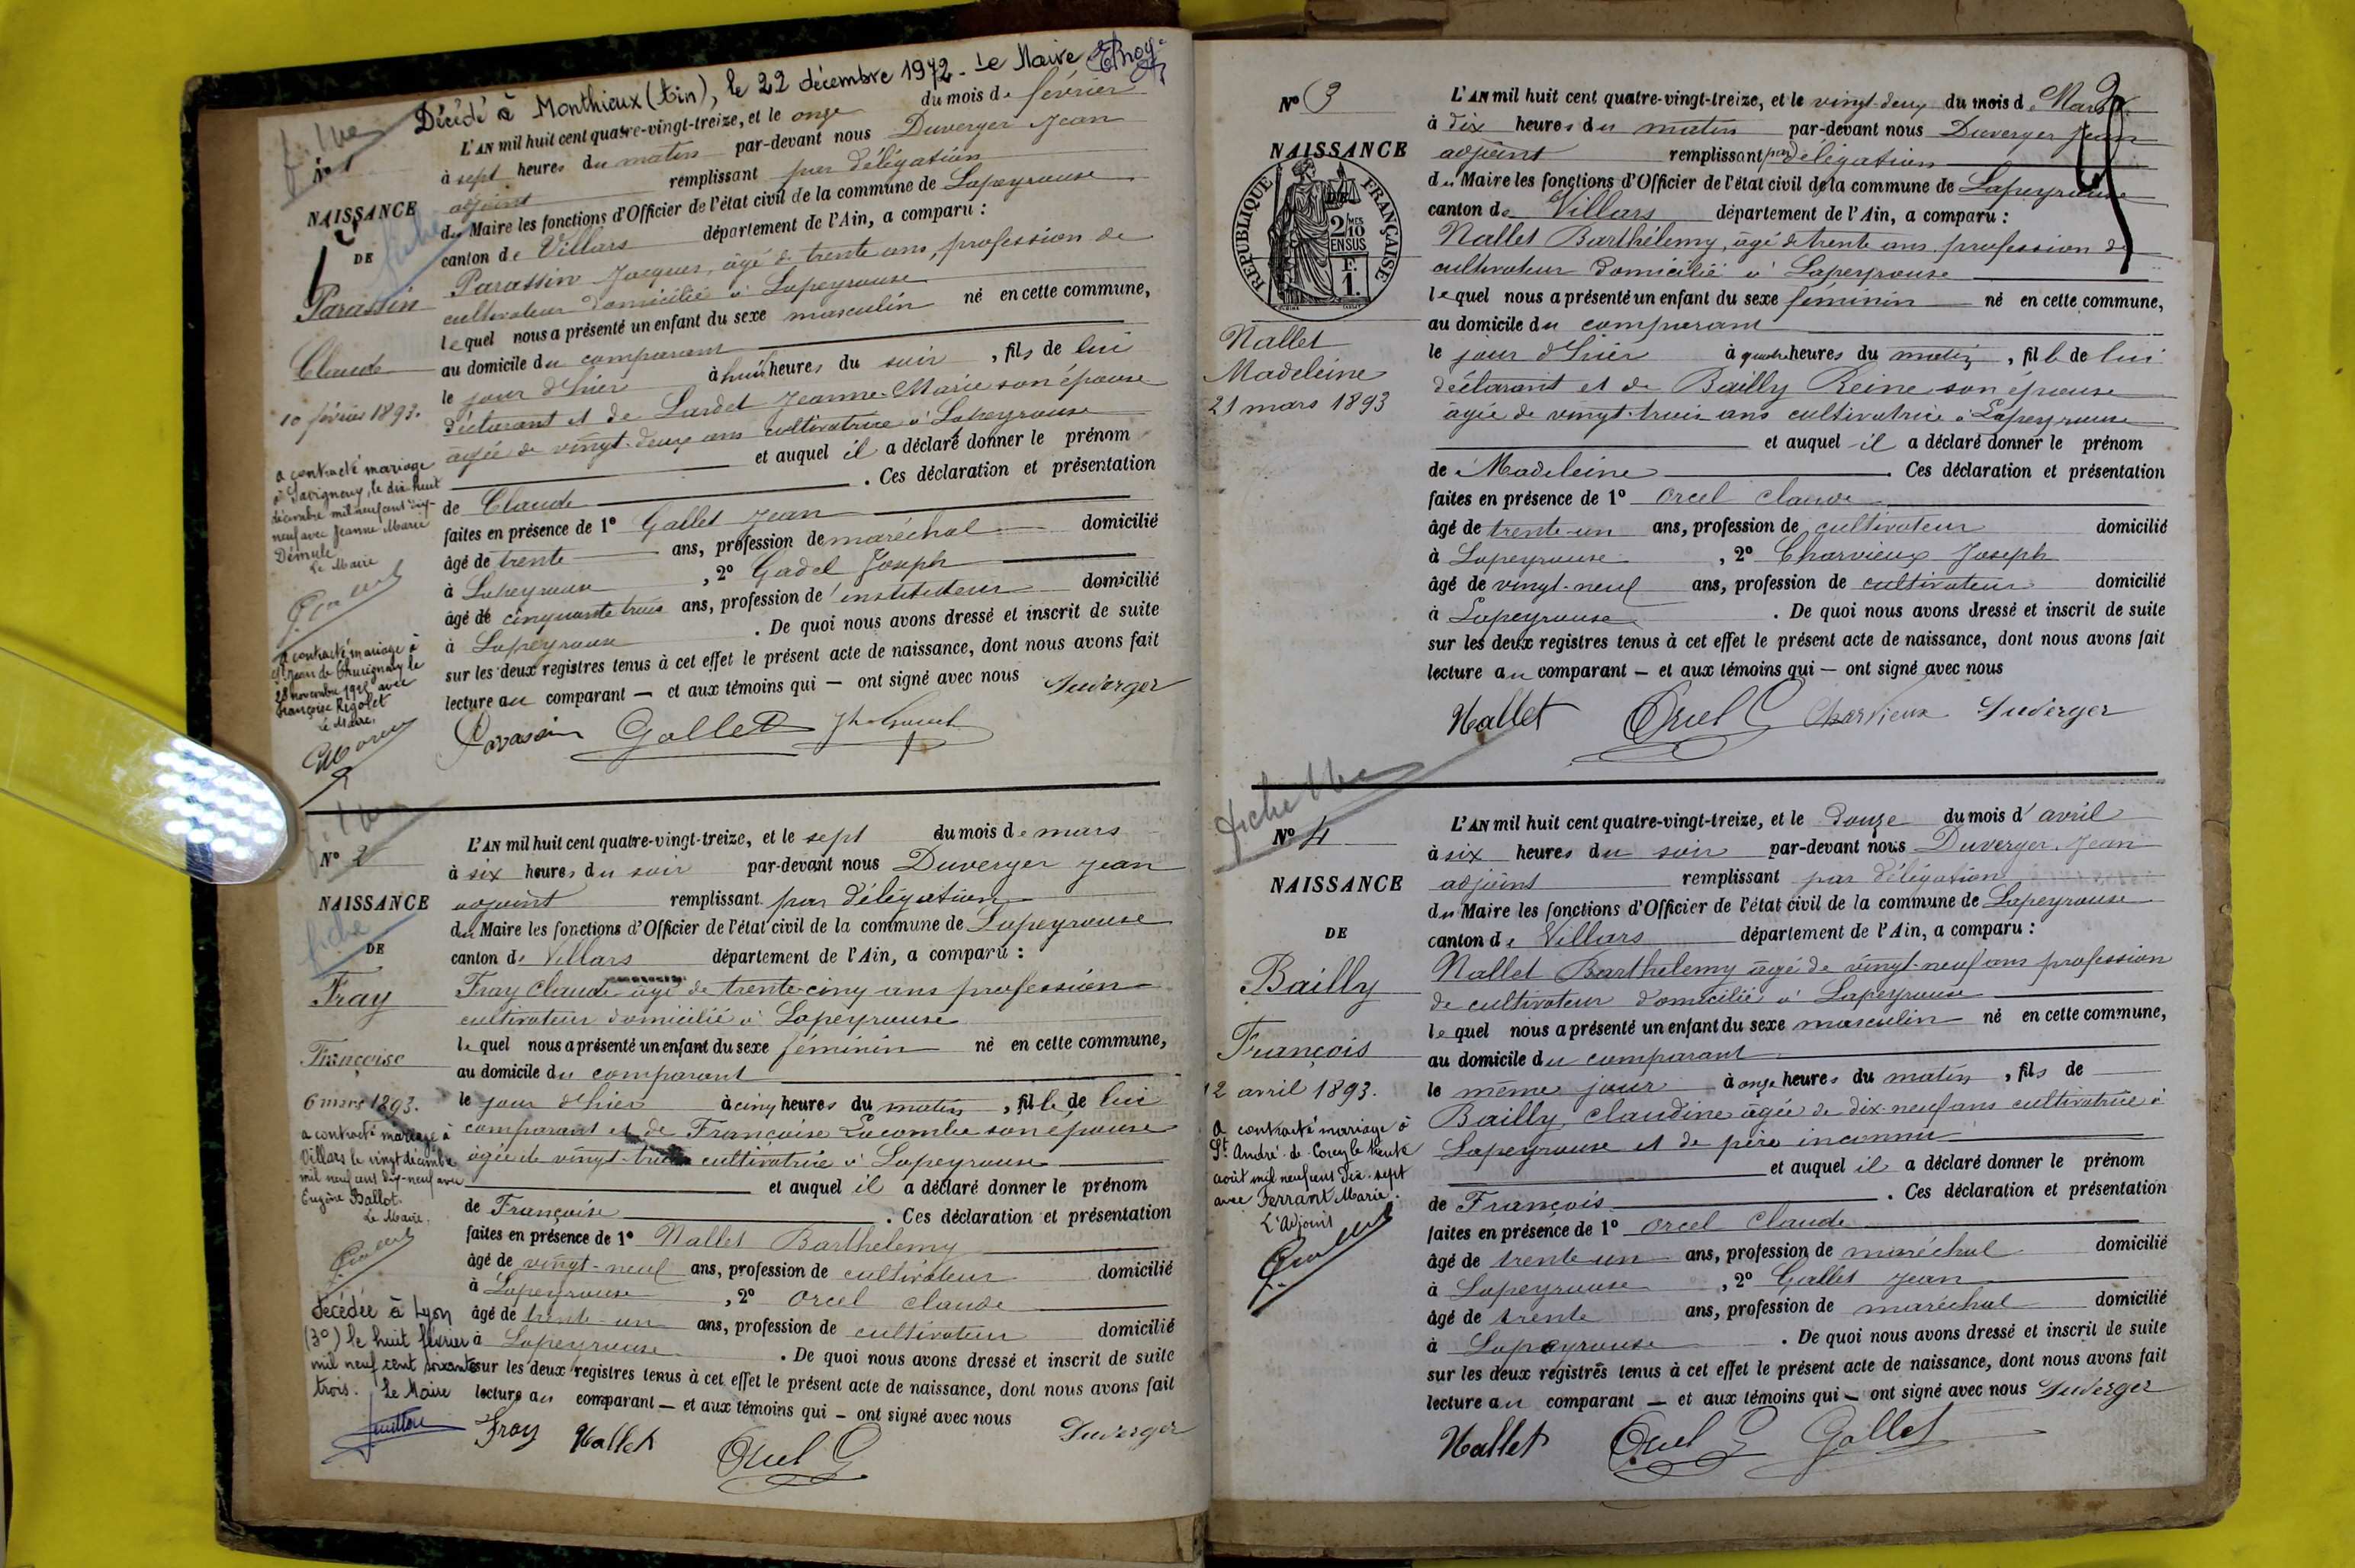 Décédé à Monthieux (Ain), le 22 décembre 1972 - Le Maire
N° 1
NAISSANCE
DE
Parassin
Claude
10 février 1893.
a contracté mariage
à Savigneux, le dix huit
décembre mil neuf cent dix-
neuf avec Jeanne Marie
Démule
Le Maire
a contracté mariage à
St Jean de Thurigneux le
28 novembre 1925 avec
Françoise Rigolet
Le Maire,
L'AN mil huit cent quatre-vingt-treize, et le onze du mois de février
à sept heures du matin par-devant nous Duverger Jean
adjoint remplissant par délégation
du Maire les fonctions d'Officier de l'état civil de la commune de Lapeyrouse
canton de Villars département de l'Ain, a comparu :
Parassin Jacques, âgé de trente ans, profession de
cultivateur domicilié à Lapeyrouse
lequel nous a présenté un enfant du sexe masculin né en cette commune,
au domicile du comparant
le jour d'hier à huit heures du soir, fils de lui
déclarant et de Lardet Jeanne-Marie son épouse
âgée de vingt-deux ans cultivatrice à Lapeyrouse
et auquel il a déclaré donner le prénom
de Claude. Ces déclaration et présentation
faites en présence de 1° Gallet Jean
âgé de trente ans, profession de maréchal domicilié
à Lapeyrouse, 2° Gadel Joseph
âgé de cinquante trois ans, profession de instituteur domicilié
à Lapeyrouse. De quoi nous avons dressé et inscrit de suite
sur les deux registres tenus à cet effet le présent acte de naissance, dont nous avons fait
lecture au comparant — et aux témoins qui — ont signé avec nous Duverger
Parassin Gallet
N° 2
NAISSANCE
fiche
DE
Fray
Françoise
6 mars 1893.
a contracté mariage à
Villars le vingt décembre
mil neuf cent dix-neuf avec
Eugène Ballot.
Le Maire.
décédée à Lyon
(3°) le huit février
mil neuf cent soixante
trois. Le Maire
L'AN mil huit cent quatre-vingt-treize, et le sept du mois de mars
à six heures du soir par-devant nous Duverger Jean
adjoint remplissant par délégation
du Maire les fonctions d'Officier de l'état civil de la commune de Lapeyrouse
canton de Villars département de l'Ain, a comparu :
Fray Claude âgé de trente-cinq ans profession
cultivateur domicilié à Lapeyrouse
lequel nous a présenté un enfant du sexe féminin né en cette commune,
au domicile du comparant
le jour d'hier à cinq heures du matin, fille de lui
comparant et de Françoise Lacombe son épouse
âgée de vingt-trois cultivatrice à Lapeyrouse
et auquel il a déclaré donner le prénom
de Françoise. Ces déclaration et présentation
faites en présence de 1° Nallet Barthelemy
âgé de vingt-neuf ans, profession de cultivateur domicilié
à Lapeyrouse, 2° Orcel Claude
âgé de trente-un ans, profession de cultivateur domicilié
à Lapeyrouse. De quoi nous avons dressé et inscrit de suite
sur les deux registres tenus à cet effet le présent acte de naissance, dont nous avons fait
lecture au comparant — et aux témoins qui — ont signé avec nous
Fray Nallet Orcel C Duverger
N° 3
NAISSANCE
RÉPUBLIQUE FRANÇAISE
2/10 MES
EN SUS
F.
1.
Nallet
Madeleine
21 mars 1893
L'AN mil huit cent quatre-vingt-treize, et le vingt-deux du mois de Mars
à dix heures du matin par-devant nous Duverger Jean
adjoint remplissant par délégation
du Maire les fonctions d'Officier de l'état civil de la commune de Lapeyrouse
canton de Villars département de l'Ain, a comparu :
Nallet Barthélemy, âgé de trente ans profession de
cultivateur domicilié à Lapeyrouse
lequel nous a présenté un enfant du sexe féminin né en cette commune,
au domicile du comparant
le jour d'hier à quatre heures du matin, fille de lui
déclarant et de Bailly Reine son épouse
âgée de vingt-trois ans cultivatrice à Lapeyrouse
et auquel il a déclaré donner le prénom
de Madeleine. Ces déclaration et présentation
faites en présence de 1° Orcel Claude
âgé de trente-un ans, profession de cultivateur domicilié
à Lapeyrouse, 2° Charvieux Joseph
âgé de vingt-neuf ans, profession de cultivateur domicilié
à Lapeyrouse. De quoi nous avons dressé et inscrit de suite
sur les deux registres tenus à cet effet le présent acte de naissance, dont nous avons fait
lecture au comparant — et aux témoins qui — ont signé avec nous
Nallet Orcel C Charvieux Duverger
fiche
N° 4
NAISSANCE
DE
Bailly
François
12 avril 1893.
a contracté mariage à
St André de Corcy le trente
août mil neuf cent dix-sept
avec Ferrant Marie.
L'Adjoint
L'AN mil huit cent quatre-vingt-treize, et le douze du mois d'avril
à six heures du soir par-devant nous Duverger Jean
adjoint remplissant par délégation
du Maire les fonctions d'Officier de l'état civil de la commune de Lapeyrouse
canton de Villars département de l'Ain, a comparu :
Nallet Barthelemy âgé de vingt-neuf ans profession
de cultivateur domicilié à Lapeyrouse
lequel nous a présenté un enfant du sexe masculin né en cette commune,
au domicile du comparant
le même jour à onze heures du matin, fils de
Bailly, Claudine âgée de dix-neuf ans cultivatrice à
Lapeyrouse et de père inconnu
et auquel il a déclaré donner le prénom
de François. Ces déclaration et présentation
faites en présence de 1° Orcel Claude
âgé de trente-un ans, profession de maréchal domicilié
à Lapeyrouse, 2° Gallet Jean
âgé de trente ans, profession de maréchal domicilié
à Lapeyrouse. De quoi nous avons dressé et inscrit de suite
sur les deux registres tenus à cet effet le présent acte de naissance, dont nous avons fait
lecture au comparant — et aux témoins qui — ont signé avec nous Duverger
Nallet Orcel C Gallet